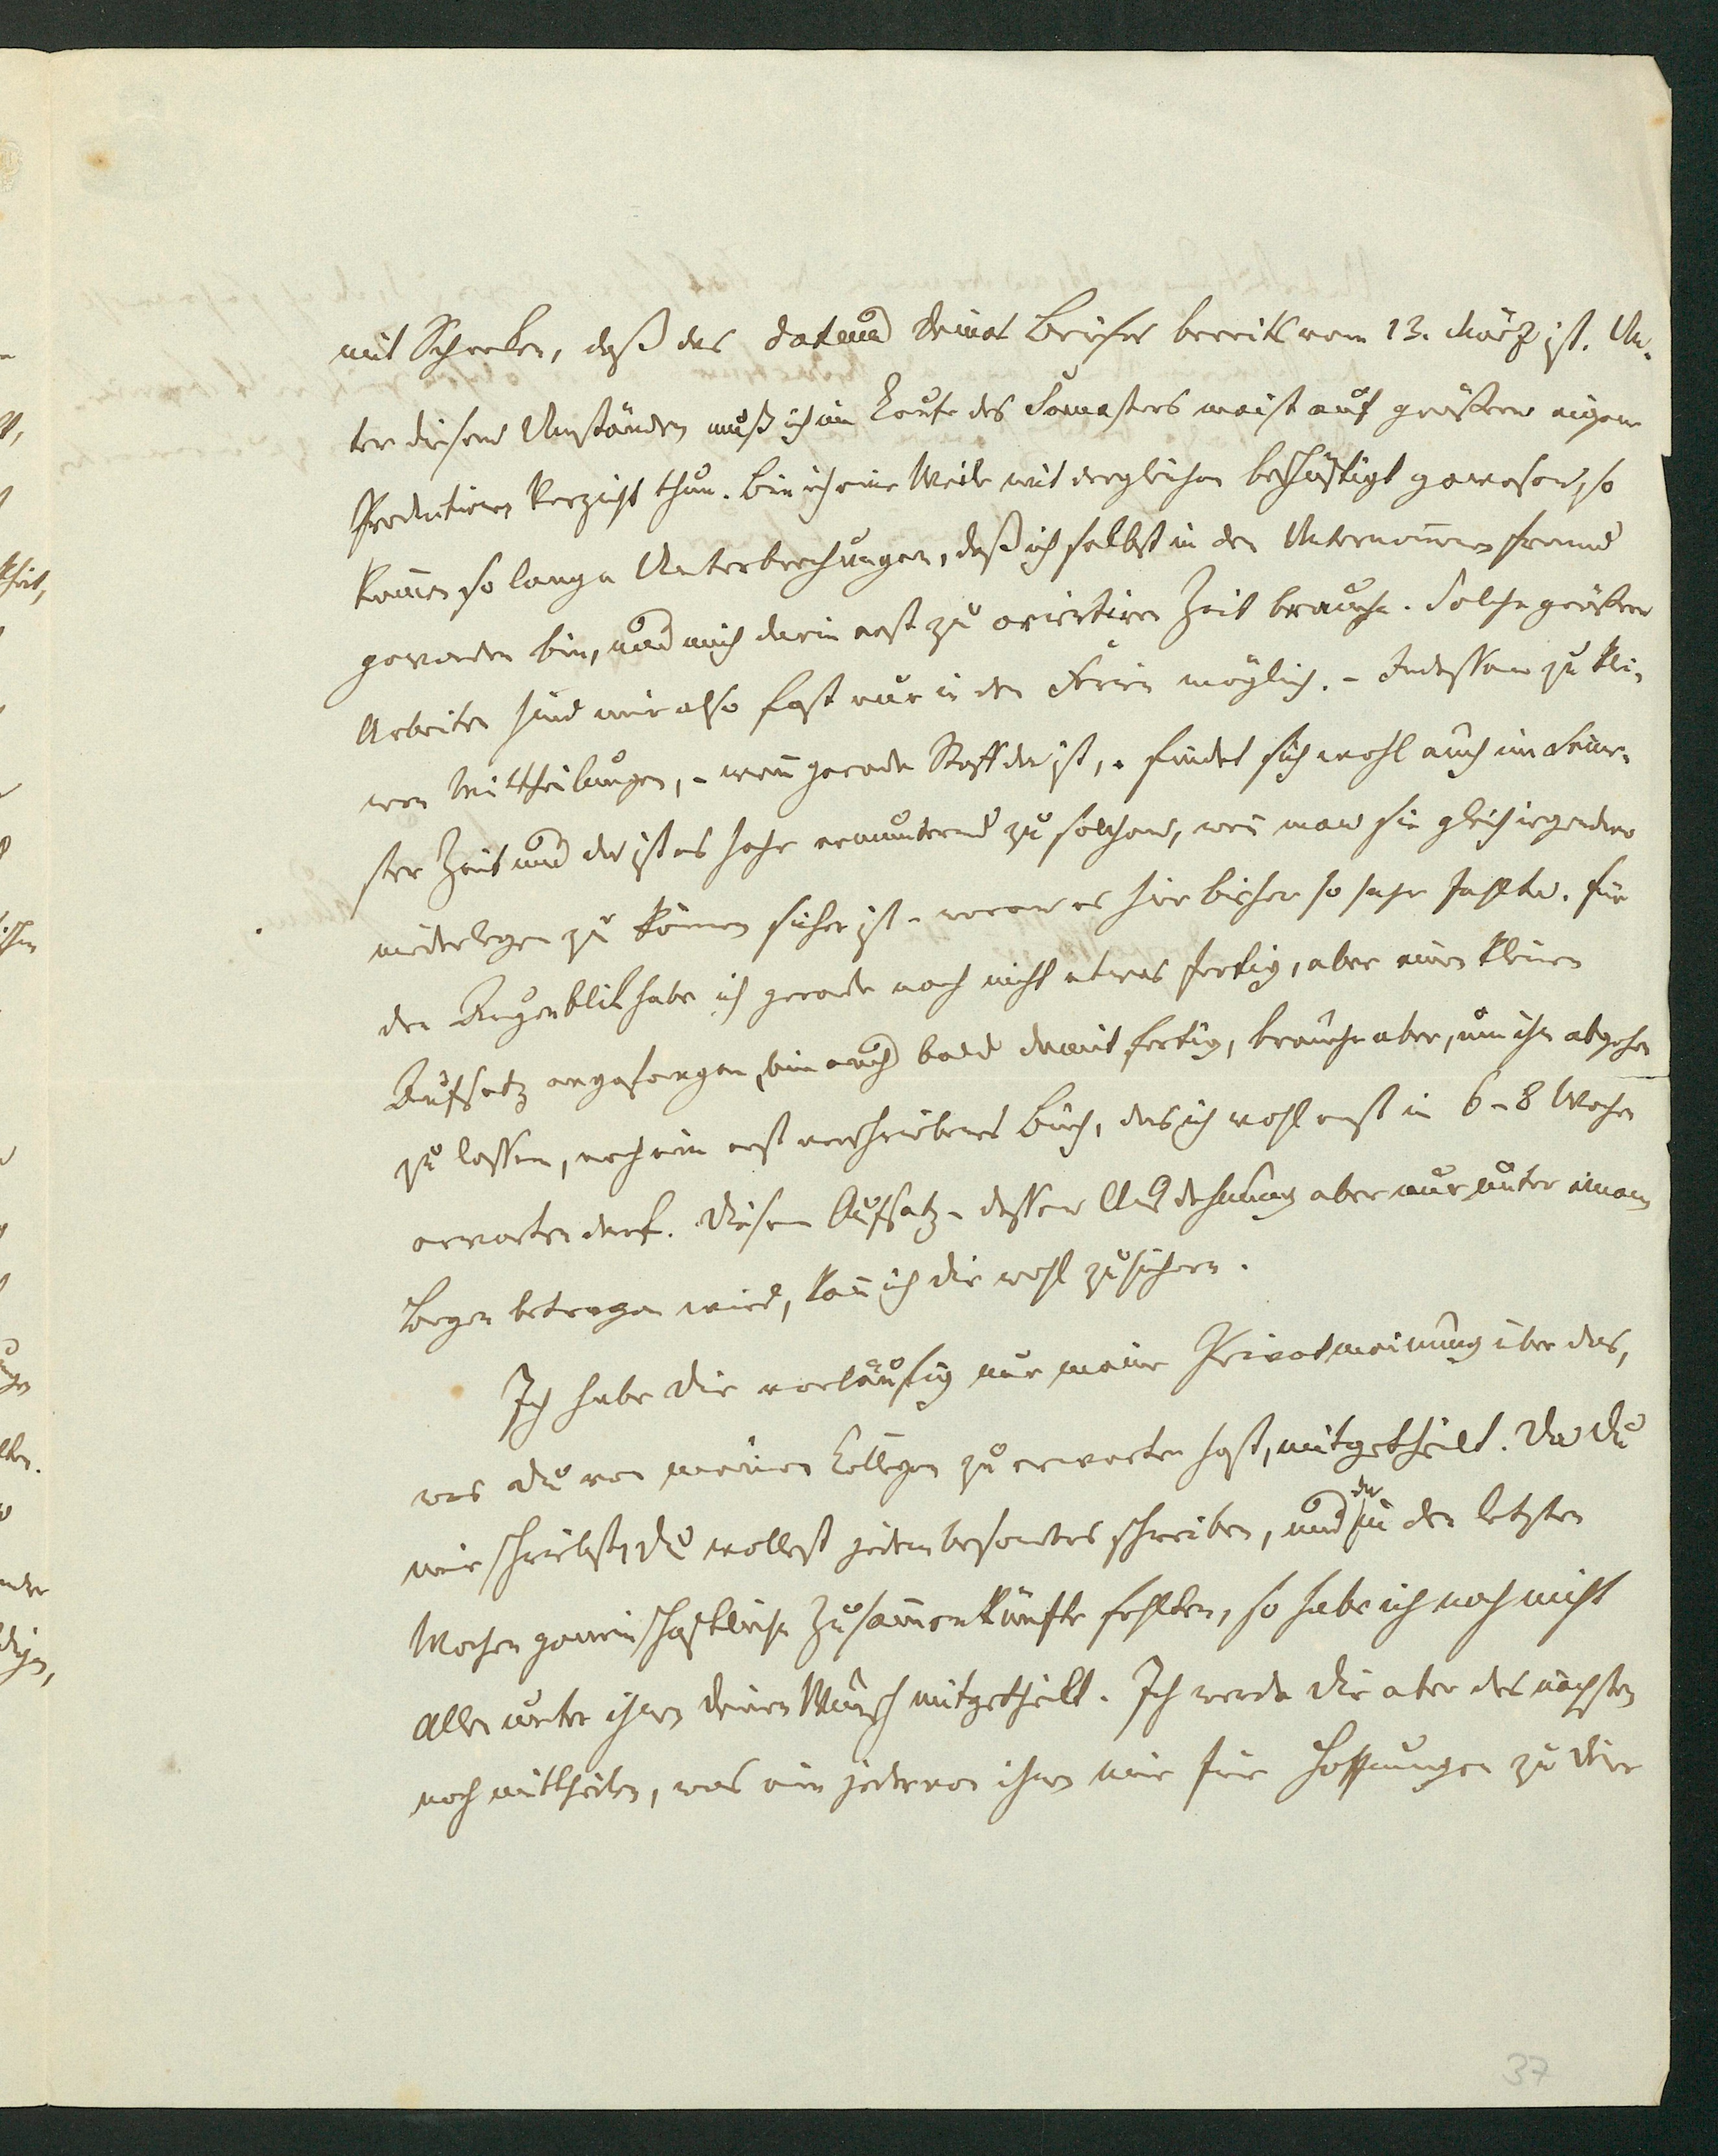 mit Schrecken, daß das Datum deines Briefes bereits vom 13. März ist. Un-
ter diesen Umständen muß ich im Laufe des Semesters meist auf größere eigene
Productionen Verzicht thun. Bin ich eine Weile mit dergleichen beschäftigt gewesen, so
kom̄en so lange Unterbrechungen, daß ich selbst in den Unternom̄enen fremd
geworden bin, und mich darin erst zu orientiren Zeit brauche. Solche größere
Arbeiten sind mir also fast nur in den Ferien möglich. – Indessen zu klei-
nen Mittheilungen, – wen̄ gerade Stoff da ist, – findet sich wohl auch im Seme-
ster Zeit und da ist es sehr ermunternd zu solchen, wen̄ man sie gleich irgendwo
niederlegen zu können sicher ist – woran es hier bisher so sehr fehlte. Für
den Augenblik habe ich gerade noch nicht etwas fertig, aber einen kleinen
Aufsatz angefangen, bin auch bald damit fertig, brauche aber, um ihn abgehen
zu lassen, noch ein erst verschriebenes Buch, das ich wohl erst in 6–8 Wochen
erwarten darf. Diesen Aufsatz – dessen Ausdehnung aber nur unter einem
Bogen betragen wird, kan̄ ich dir wohl zusichern.
Ich habe dir vorläufig nur meine Privatmeinung über das,
was du von meinen Collegen zu erwarten hast, mitgetheilt. Da du
mir schriebst, du wollest jedem besonders schreiben, und da in den letzten
Wochen gemeinschaftliche Zusam̄enkünfte fehlten, so habe ich noch nicht
allen unter ihnen deinen Wunsch mitgetheilt. Ich werde dir aber des nächsten
noch mittheilen, was ein jeder von ihnen mir für Hoffnungen zu dein
37